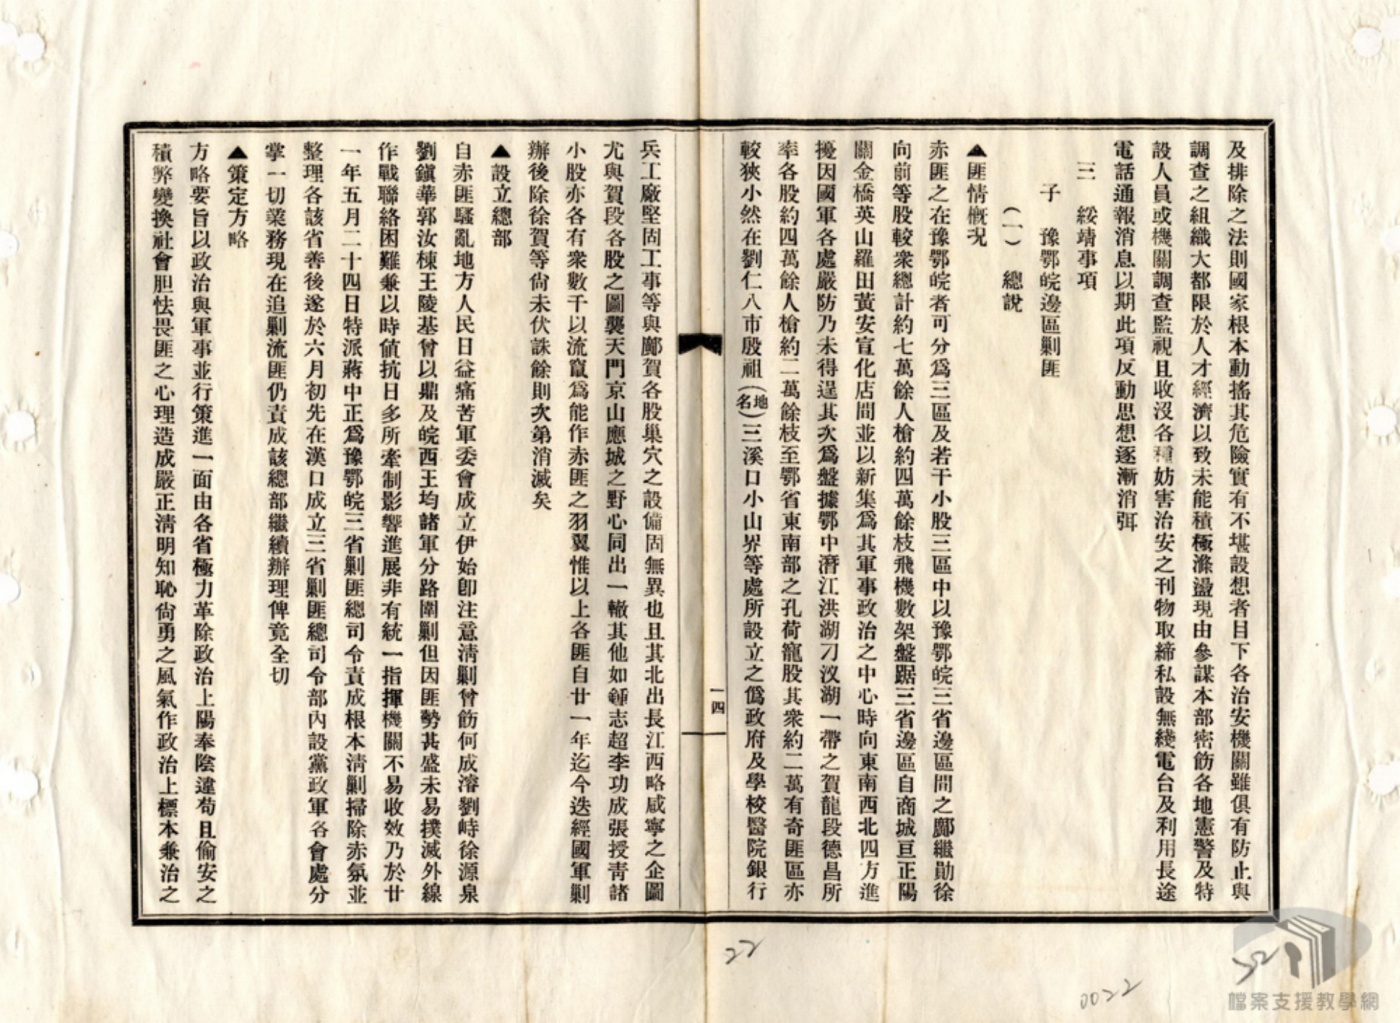 及排除之法則國家根本動搖其危險實有不堪設想者目下各治安機關雖俱有防止與
調查之組織大都限於人才經濟以致未能積極滌盪現由參謀本部密飭各地憲警及特
設人員或機關調查監視且收沒各種妨害治安之刊物取締私設無綫電台及利用長途
電話通報消息以期此項反動思想逐漸消弭
三 綏靖事項
子 豫鄂皖邊區剿匪
(一) 總說
▲匪情概况
赤匪之在豫鄂皖者可分爲三區及若干小股三區中以豫鄂皖三省邊區間之鄺繼勛徐
向前等股較衆總計約七萬餘人槍約四萬餘枝飛機數架盤踞三省邊區自商城亘正陽
關金橋英山羅田黃安宣化店間並以新集爲其軍事政治之中心時向東南西北四方進
擾因國軍各處嚴防乃未得逞其次爲盤據鄂中潛江洪湖刁汊湖一帶之賀龍段德昌所
率各股約四萬餘人槍約二萬餘枝至鄂省東南部之孔荷寵股其衆約二萬有奇匪區亦
較狹小然在劉仁八市殷祖(地名)三溪口小山界等處所設立之僞政府及學校醫院銀行
一四
兵工廠堅固工事等與鄺賀各股巢穴之設備固無異也且其北出長江西略咸寧之企圖
尤與賀段各股之圖襲天門京山應城之野心同出一轍其他如鍾志超李功成張授靑諸
小股亦各有衆數千以流竄爲能作赤匪之羽翼惟以上各匪自廿一年迄今迭經國軍剿
辦後除徐賀等尙未伏誅餘則次第消滅矣
▲設立總部
自赤匪騷亂地方人民日益痛苦軍委會成立伊始卽注意淸剿曾飭何成濬劉峙徐源泉
劉鎭華郭汝棟王陵基曾以鼎及皖西王均諸軍分路圍剿但因匪勢甚盛未易撲滅外線
作戰聯絡困難兼以時値抗日多所牽制影響進展非有統一指揮機關不易收效乃於廿
一年五月二十四日特派蔣中正爲豫鄂皖三省剿匪總司令責成根本淸剿掃除赤氛並
整理各該省善後遂於六月初先在漢口成立三省剿匪總司令部內設黨政軍各會處分
掌一切業務現在追剿流匪仍責成該總部繼續辦理俾竟全切
▲策定方略
方略要旨以政治與軍事並行策進一面由各省極力革除政治上陽奉陰違苟且偷安之
積弊變換社會胆怯畏匪之心理造成嚴正淸明知恥尙勇之風氣作政治上標本兼治之
22
0022
檔案支援教學網